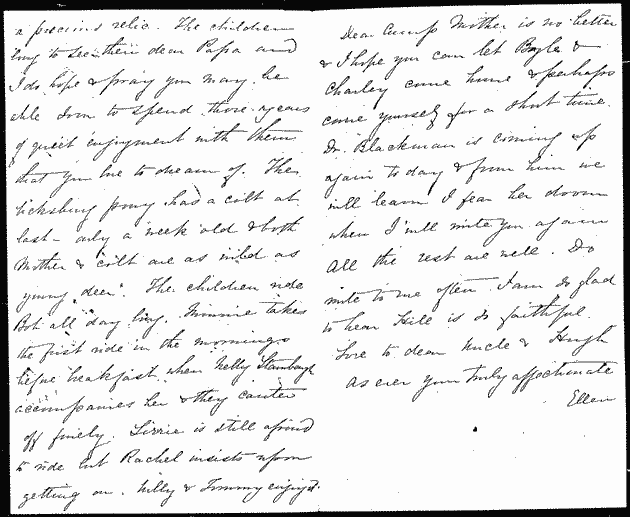 a precious relic. The children
long to see their dear Papa and
I do hope & pray you may be
able soon to spend those years
of quiet enjoyment with them
that you love to dream of. The
Vicksburg pony has a colt at
last - only a week old & both
Mother & colt are as wild as
young "deer". The children ride
Bob all day long. Minnie takes
the first ride in the mornings
before breakfast when Nelly Stambaugh
accompanies her & they canter
off finely. Lizzie is still afraid
to ride but Rachel insists upon
getting on. Willy & Tommy enjoy it.
Dear Cump Mother is no better
& I hope you can let Boyle &
Charley come home & perhaps
come yourself for a short time.
Dr. Blackman is coming up
again to day & from him we
will learn I fear her doom
when I will write you again
All the rest are well. Do
write to me often. I am so glad
to hear Hill is so faithful.
Love to dear Uncle & Hugh
As ever your truly affectionate
Ellen